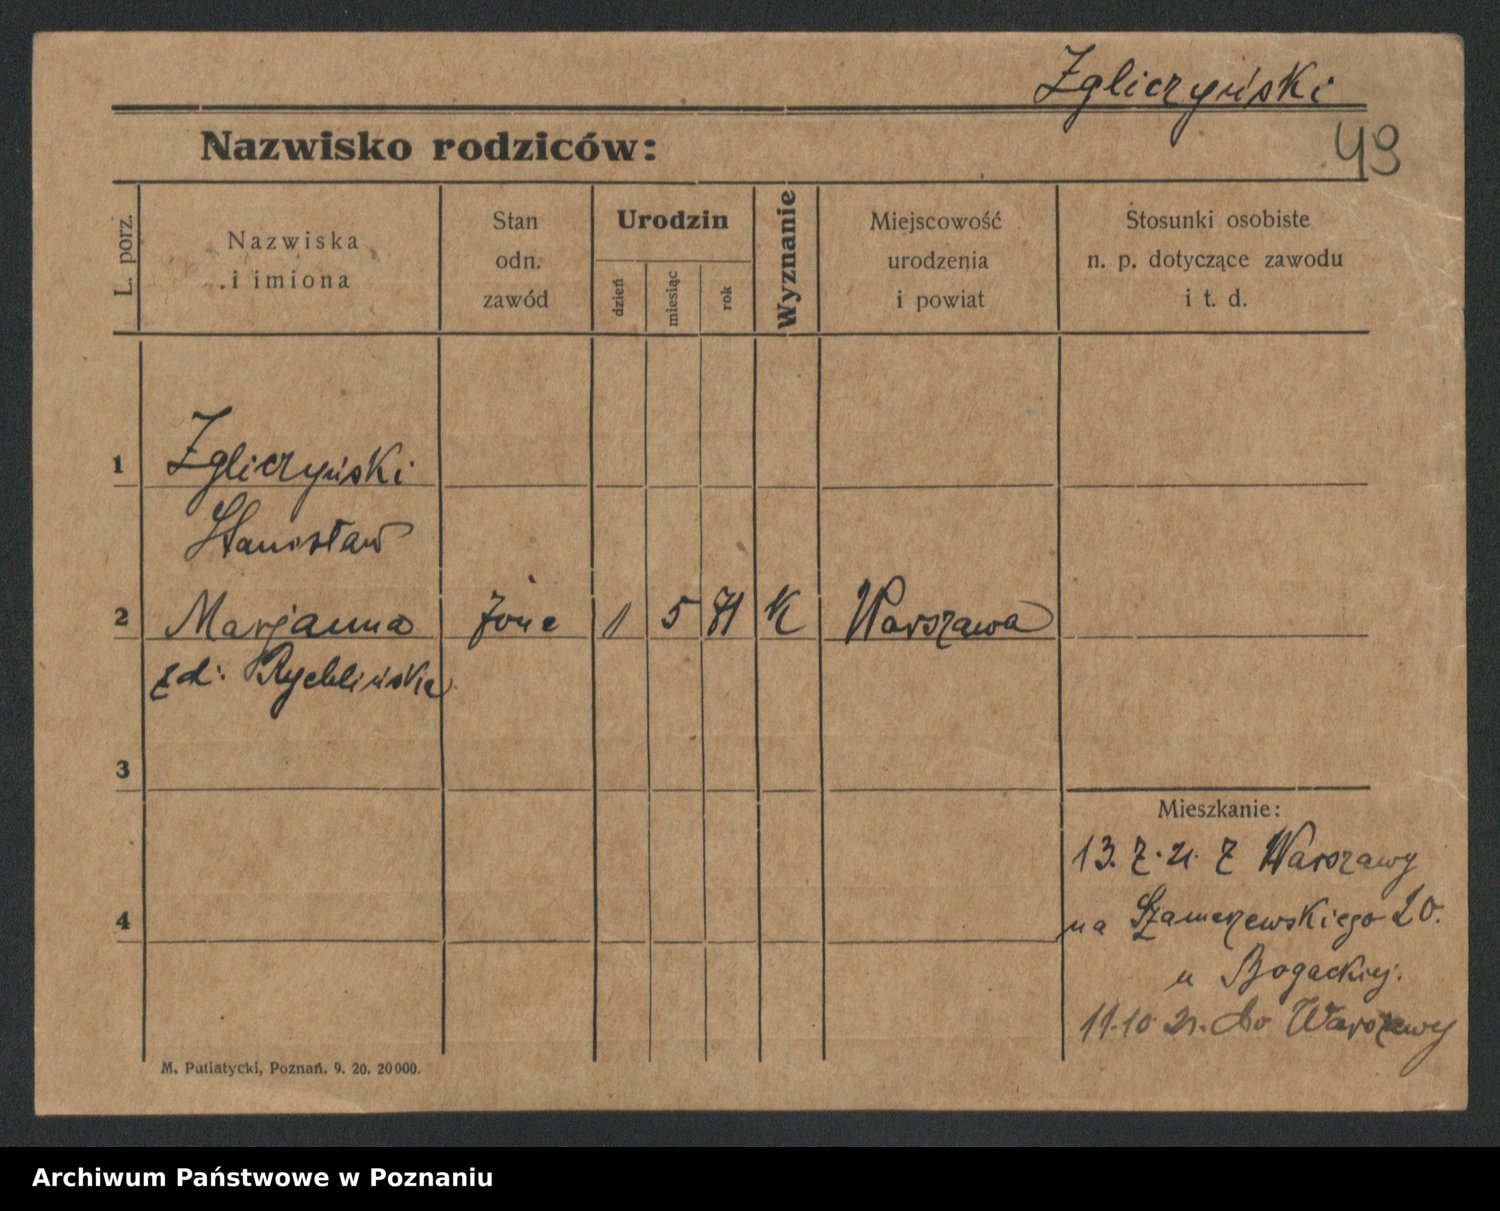 Zgliczyński
49
Nazwisko rodziców:
L. porz.
Nazwiska
i imiona
Stan
odn.
zawód
Urodzin
dzień
miesiąc
rok
Wyznanie
Miejscowość
urodzenia
i powiat
Stosunki osobiste
n. p. dotyczące zawodu
i t. d.
1 Zgliczyński
Stanisław
2 Marjanna żona 1 5 71 K Warszawa
zd: Rychlińska
3
Mieszkanie:
13. 7. 21. z Warszawy
4
na Szamarzewskiego 20.
u Bogackiej.
11.10 21. do Warszawy
M. Putiatycki, Poznań. 9. 20. 20000.
Archiwum Państwowe w Poznaniu